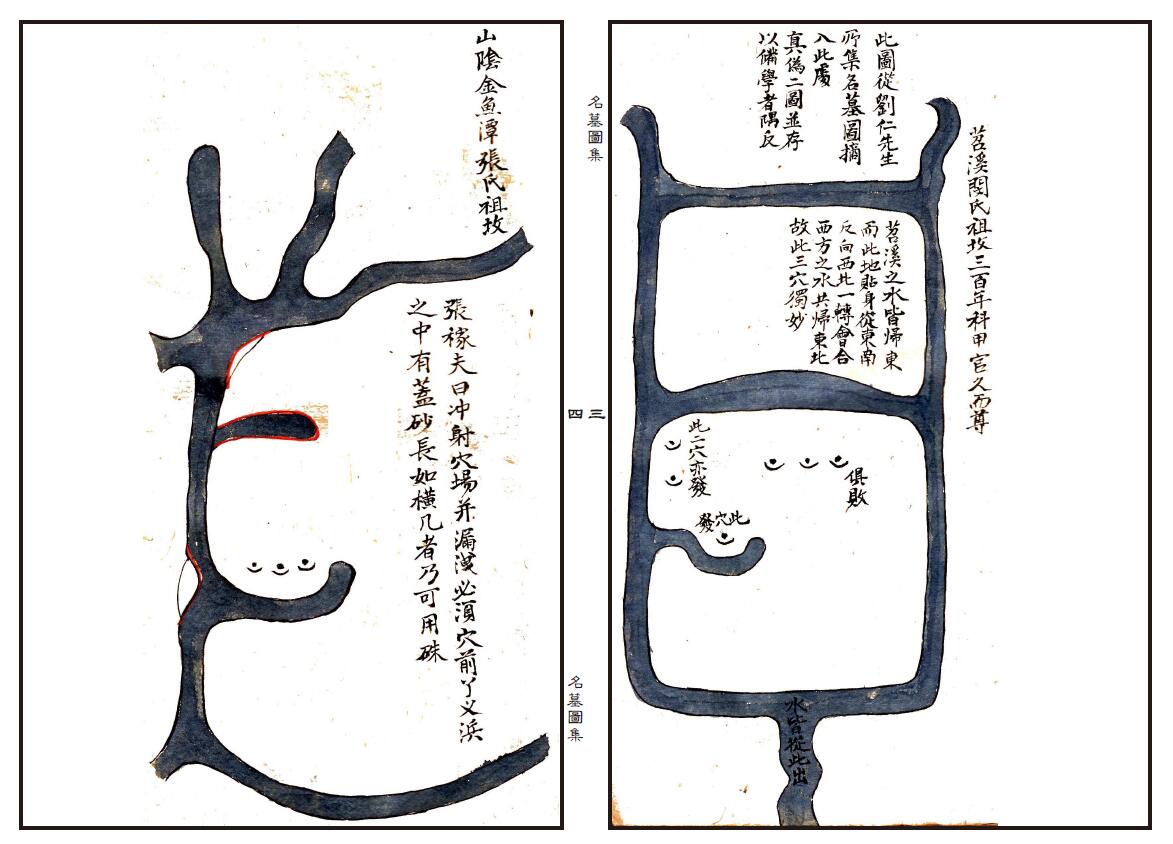 苕溪閔氏祖坟三百年科甲官久而尊
此圖從劉仁先生
所集名墓圖摘
入此處
真偽二圖並存
以備學者隅反
苕溪之水皆歸東
而此地貼身從東南
反向西北一轉會合
西方之水共歸東北
故此三穴獨妙
俱敗
此二穴亦發
此穴發
水皆從此出
名墓圖集
三四
名墓圖集
山陰金魚潭張氏祖坟
張稼夫曰冲射穴場并漏洩必須穴前丫义浜
之中有蓋砂長如橫几者乃可用硃